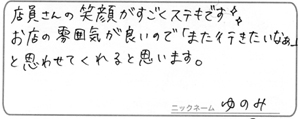 店員さんの笑顔がすごくステキです✨
お店の雰囲気が良いので「また行きたいなぁ」
と思わせてくれると思います。
ニックネーム ゆのみ